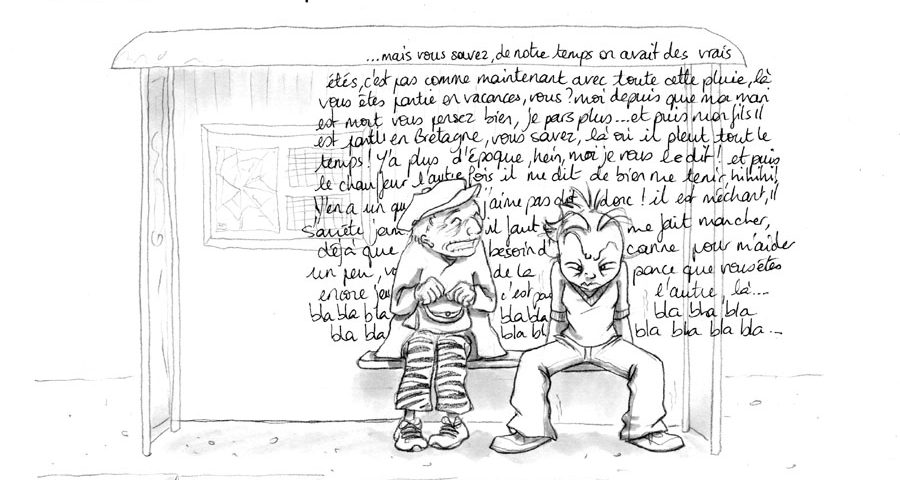 ...mais vous savez, de notre temps on avait des vrais
étés, c'est pas comme maintenant avec toute cette pluie, là
vous êtes partie en vacances, vous ? moi depuis que mon mari
est mort vous pensez bien, je pars plus... et puis mon fils il
est parti en Bretagne, vous savez, là où il pleut tout le
temps ! Y'a plus d'époque, hein, moi je vous le dit ! et puis
le chauffeur l'autre fois il me dit de bien me tenir hihihi,
Y'en a un j'aime pas donc ! il est méchant, il
il faut me fait marcher,
déjà que besoin d' canne pour m'aider
un peu, de la parce que vous êtes
encore c'est pas l'autre, là....
bla bla bla bla bla bla bla bla
bla bla bla bla bla bla bla...